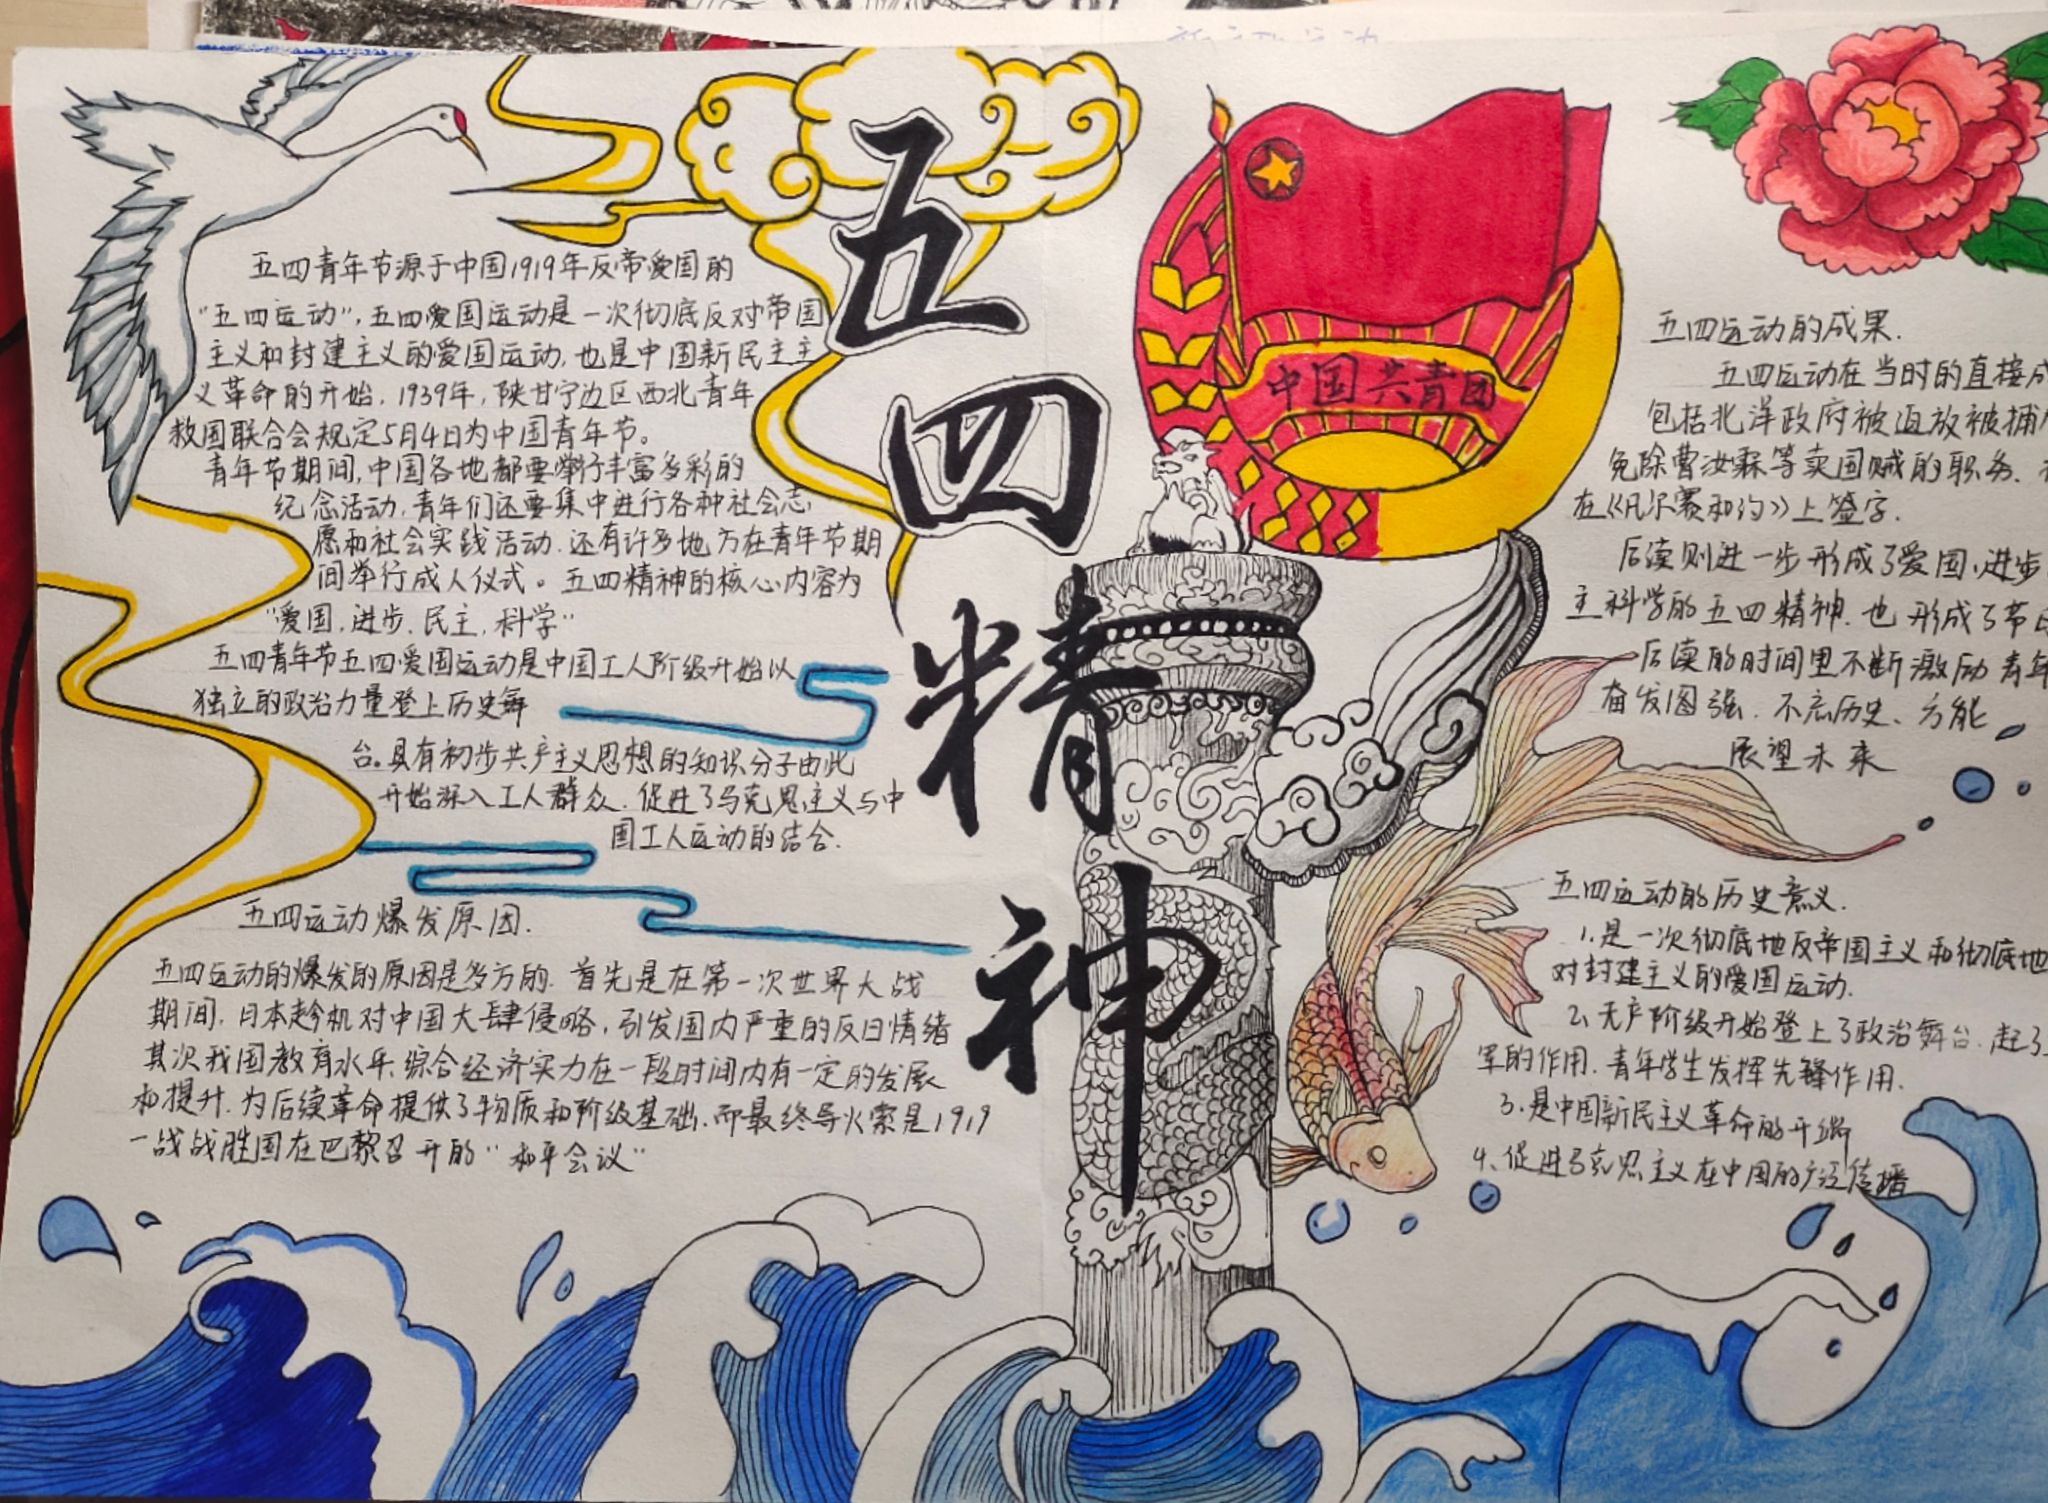 五四精神
中国共青团
五四青年节源于中国1919年反帝爱国的
"五四运动",五四爱国运动是一次彻底反对帝国
主义和封建主义的爱国运动,也是中国新民主主
义革命的开始,1939年,陕甘宁边区西北青年
救国联合会规定5月4日为中国青年节。
青年节期间,中国各地都要举行丰富多彩的
纪念活动,青年们还要集中进行各种社会志
愿和社会实践活动.还有许多地方在青年节期
间举行成人仪式。五四精神的核心内容为
"爱国,进步,民主,科学"
五四青年节五四爱国运动是中国工人阶级开始以
独立的政治力量登上历史舞
台。具有初步共产主义思想的知识分子由此
开始深入工人群众.促进了马克思主义与中
国工人运动的结合.
五四运动爆发原因.
五四运动的爆发的原因是多方的.首先是在第一次世界大战
期间,日本趁机对中国大肆侵略,引发国内严重的反日情绪
其次我国教育水平,综合经济实力在一段时间内有一定的发展
和提升.为后续革命提供了物质和阶级基础.而最终导火索是1919
一战战胜国在巴黎召开的"和平会议"
五四运动的成果.
五四运动在当时的直接成
包括北洋政府被迫放被捕
免除曹汝霖等卖国贼的职务.
在《凡尔赛和约》上签字.
后续则进一步形成了爱国,进步
主科学的五四精神.也形成了节
后续的时间里不断激励青年
奋发图强.不忘历史、方能
展望未来
五四运动的历史意义.
1.是一次彻底地反帝国主义和彻底地
对封建主义的爱国运动.
2、无产阶级开始登上了政治舞台.起了
军的作用.青年学生发挥先锋作用.
3.是中国新民主义革命的开端
4、促进马克思主义在中国的广泛传播